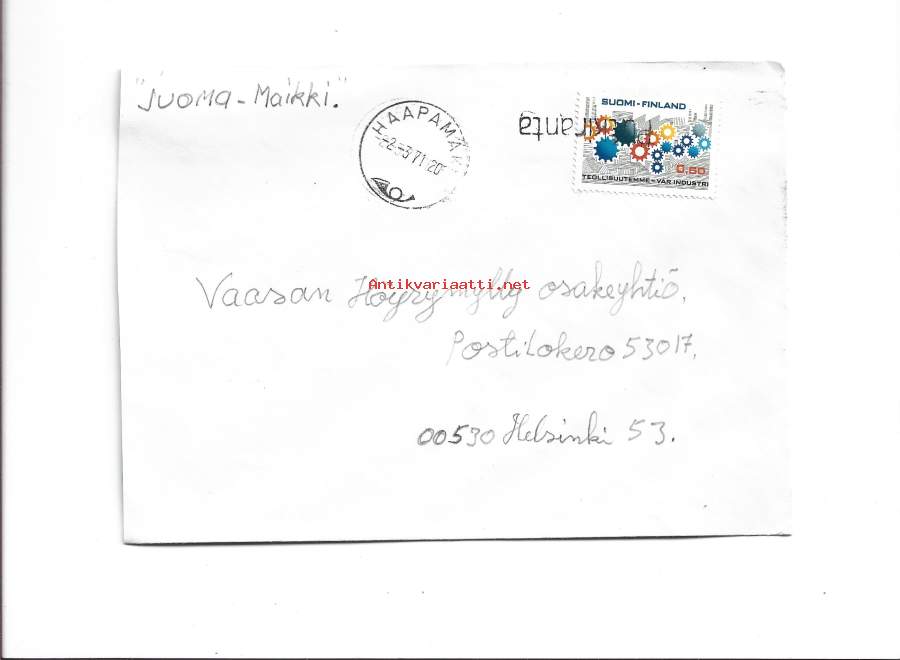 "Juoma-Maikki."
HAAPAMÄKI
-2.-3.71.20
SUOMI-FINLAND
0,50
TEOLLISUUTEMME-VÅR INDUSTRI
Antikvariaatti.net
Vaasan Höyrymylly osakeyhtiö.
Postilokero 53017.
00530 Helsinki 53.